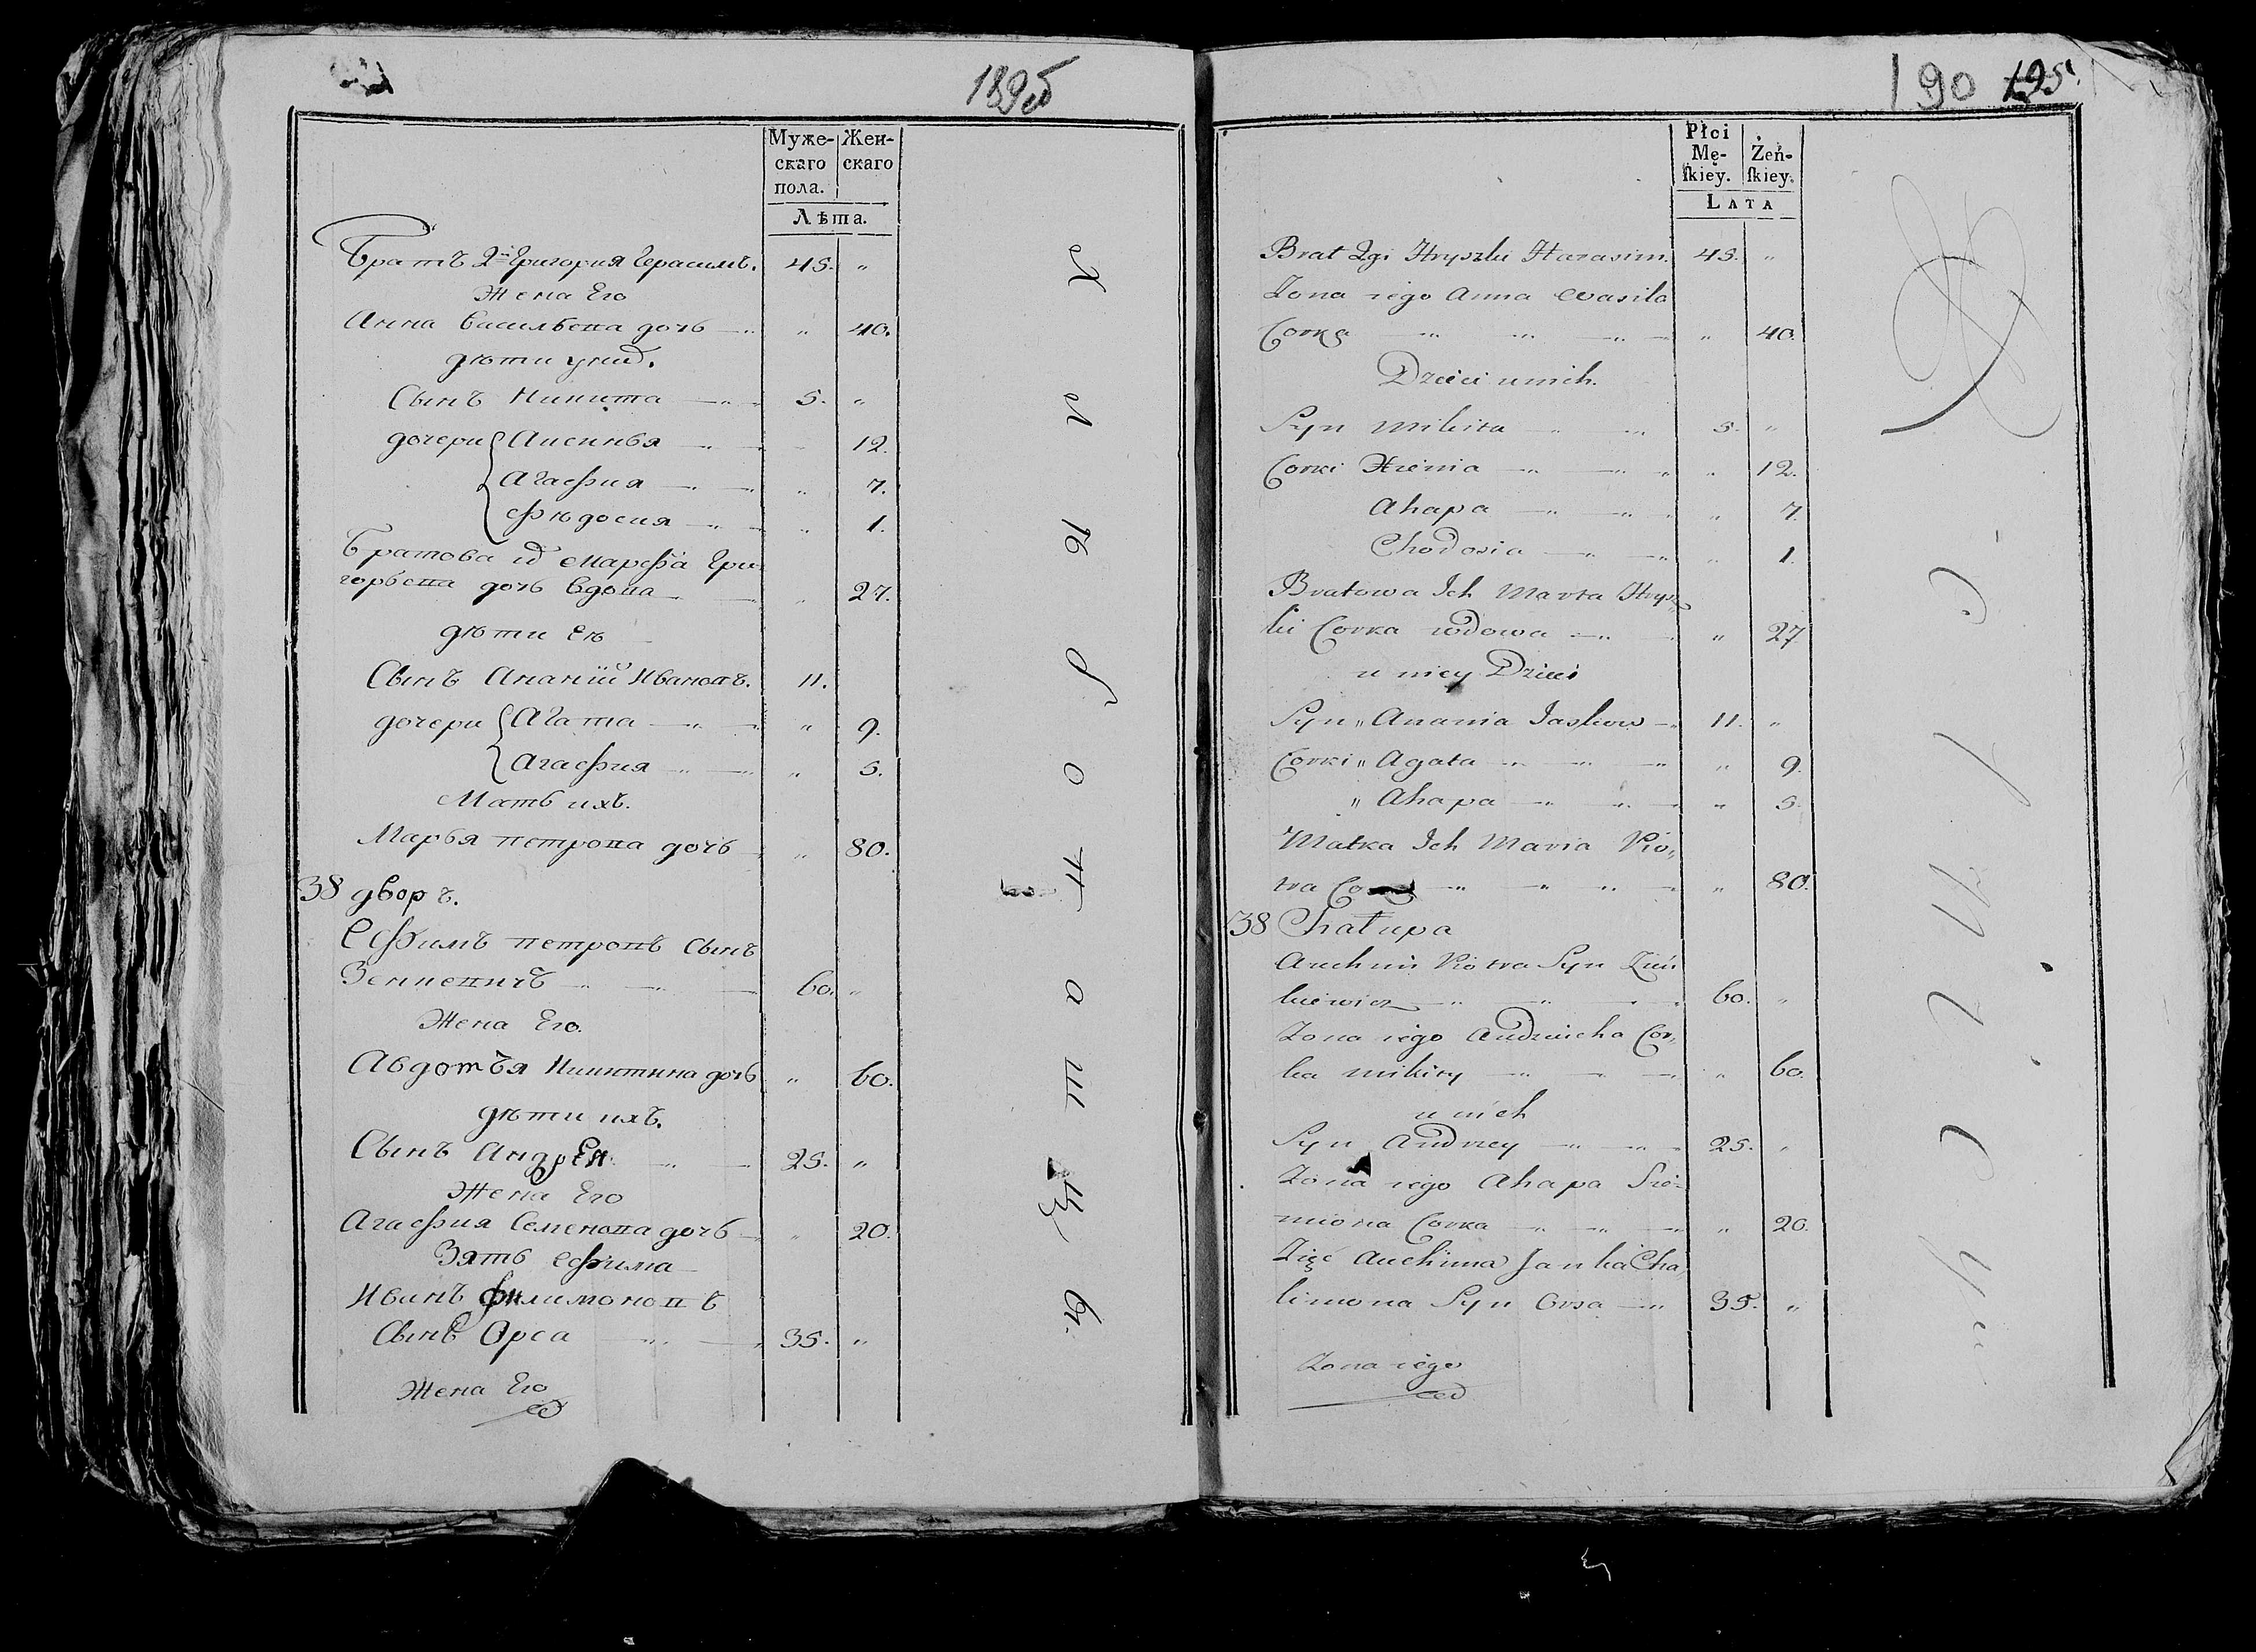 189 об
Муже-
скаго
пола.
Жен-
скаго
Лѣта.
Братъ 2й Григория Герасимъ. 45. "
Жена Его
Анна Васильева дочь " 40.
дѣти у нид.
Сынъ Никита 5. "
дочери Аксинья 12.
Агафия " 7.
Фѣдосия " 1.
Братова ид Марфа Гри-
горьева дочь вдова " 27.
дѣти Еѣ
Сынъ Ананий Ивановъ. 11.
дочери Агата " 9.
Агафия " 5.
Мать ихъ.
Марья петрова дочь " 80.
38 дворъ.
Ефимъ петровъ Сынъ
Зенкевичъ 60. "
Жена Его.
Авдотья Никитина дочь " 60.
дѣти ихъ.
Сынъ Андрей 25. "
Жена Его
Агафия Семенова дочь " 20.
Зять Ефима
Иванъ Филимоновъ
Сынъ Орса 35. "
Жена Его
190 195.
Płci
Mę-
ſkiey.
Żeń-
ſkiey.
LATA
Brat 2gi Hryszki Harasim. 45. "
Zona iego Anna Wasila
Corka " 40.
Dzieci u nich.
Syn Mikita 5. "
Corki Xienia " 12.
Ahapa " 7.
Chodosia " 1.
Bratowa Ich Marta Hrysz
ki Corka wdowa " 27
u niey Dzieci
Syn " Anania Jaskow 11. "
Corki " Agata " 9.
" Ahapa " 5.
Matka Ich Maria Pio„
tra 80.
38 Chałupa
Auchim Piotra Syn Zień
kiewicz 60. "
Zona iego Audziucha Cor„
ka Mikity " 60.
u nich
Syn Andrzey 25. "
Zona iego Ahapa Sie-
miona Corka " 20.
Zięć Auchima Janka Cha„
limona Syn Orsa 35. "
Zona iego